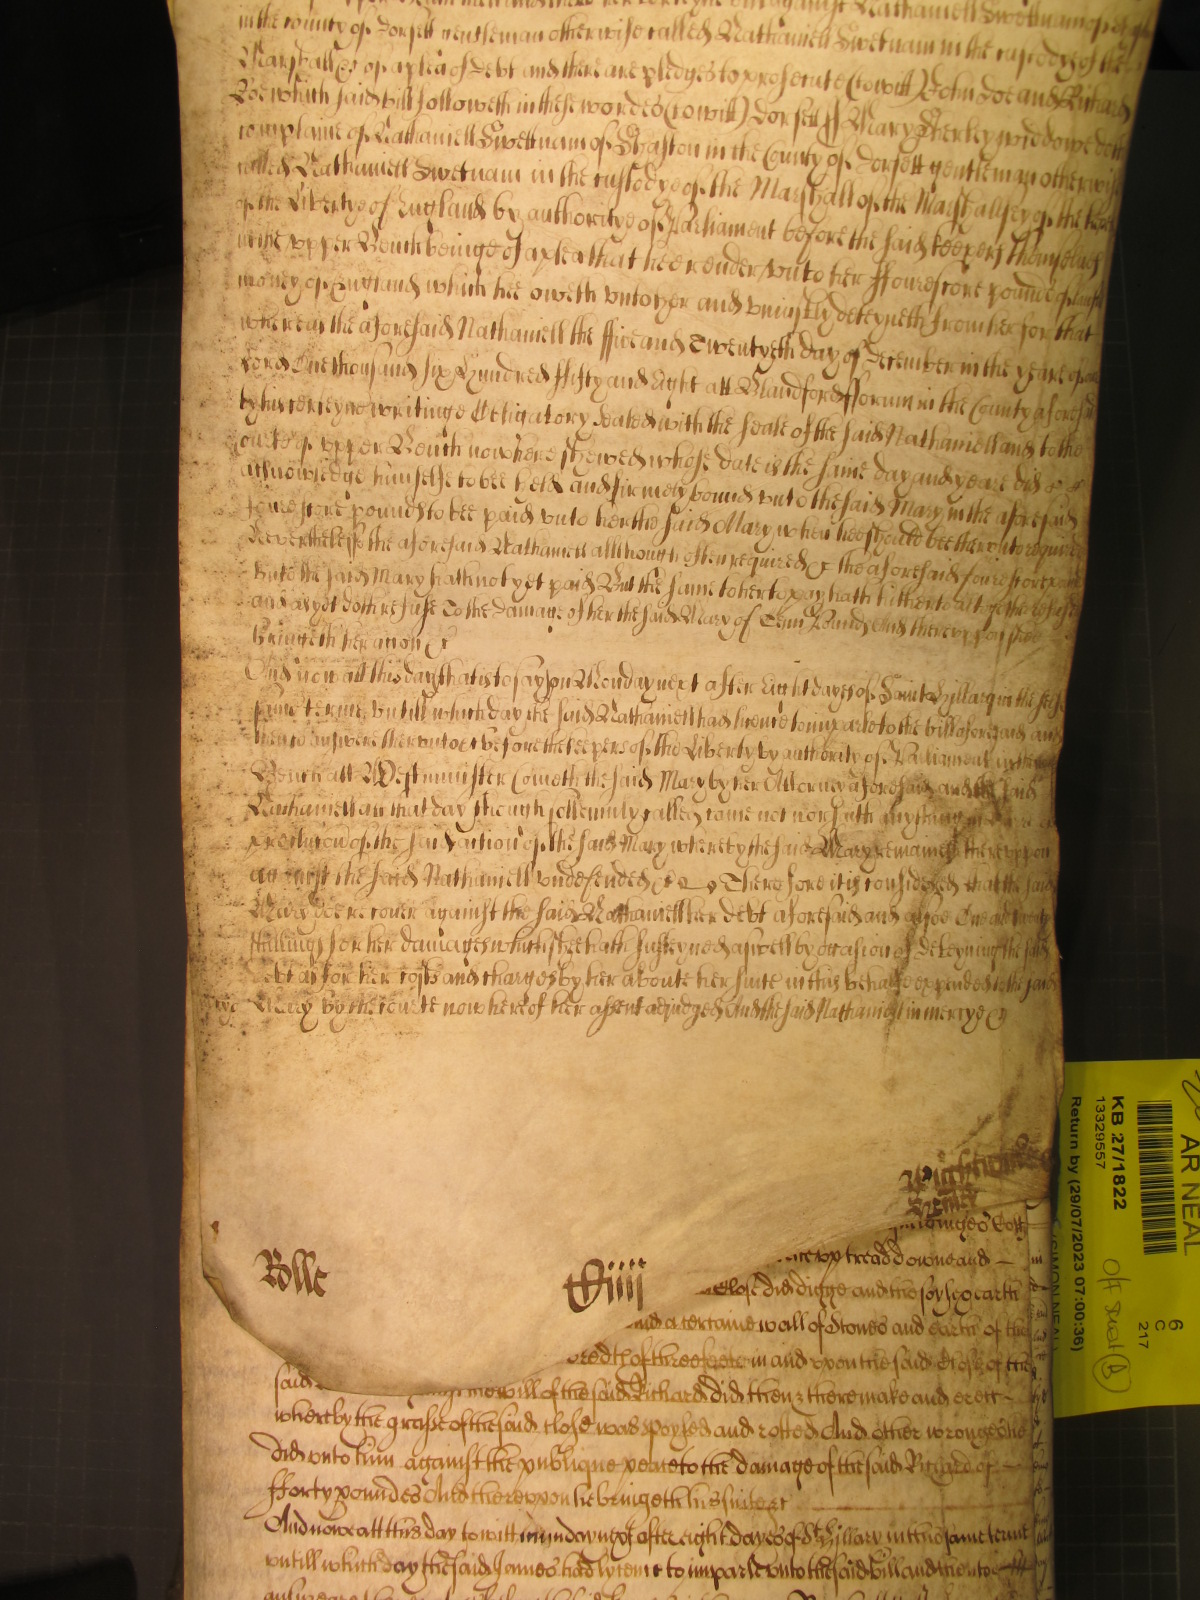 in the county of Dorsett gentleman otherwise called Nathaniell Swetnam in the custodye of the
Marshall &c of a plea of Debt and there are pledges to prosecute (to witt) John Doe and Richard
Roe which said bill followeth in these wordes (to witt) Dorsett ss Mary Sherley widdowe doth
complaine of Nathaniell Swettnam of Shaston in the County of Dorsett gentleman otherwise
called Nathaniell Swetnam in the custodye of the Marshall of the Marshallsey of the keepers
of the Libertye of England by authoritye of Parliament before the said keepers
in the upper Bench beinge of a plea that hee render unto her ffourescore pounds of lawfull
money of England which hee oweth unto her and uniustly deteyneth from her for that
whereas the aforesaid Nathaniell the ffive and Twentyeth day of December in the yeare of our
Lord One thousand six hundred ffifty and Eight att Blandford fforum in the County aforesaid
by his certeyne writinge Obligatory sealed with the seale of the said Nathaniell and to the
Courte of upper Bench now here shewed whose date is the same day and yeare did
acknowledge himselfe to bee held and firmely bound unto the said Mary in the aforesaid
fourescore pounds to bee paid unto her the said Mary when hee should bee thereunto required
Neverthelesse the aforesaid Nathaniell allthough often required &c the aforesaid fourescore pounds
unto the said Mary hath not yet paid But the same to her to pay hath hitherto altogether refused
and as yet doth refuse To the damage of her the said Mary of Tenn Pounds And thereupon shee
bringeth her action &c
And now att this day that is to say on Monday next after Eight dayes of Saint Hillary in the
same terme untill which day the said Nathaniell had licence to imparle to the bill aforesaid and
then to answere thereunto &c before the keepers of the Liberty by authority of Parliament in the upper
Bench att Westminster Cometh the said Mary by her Attorney aforesaid and the said
Nathaniell att that day though sollemnly called came not nor saith anything in
preclusion of the said action of the said Mary whereby the said Mary remaineth thereuppon
against the said Nathaniell undefended &c Therefore it is considered that the said
Mary doe recover against the said Nathaniell her debt aforesaid and alsoe One and twenty
shillings for her damages which shee hath susteyned aswell by occasion of deteyning the said
debt as for her costs and charges by her aboute her suite in this behalfe expended to the said
Mary by the Courte now here of her assent adjudged And the said Nathaniell in mercye &c
Rolle
tread downe and
Close did digge and the soyle &c earth
and a certaine wall of Stones and earth of the
bredth of three feete in and uppon the said Close of the
said will of the said Richard did then & there make and erect
whereby the grasse of the said close was spoyled and rotted And other wronges he
did unto him against the publique peace to the damage of the said Richard of
fforty poundes And thereuppon he bringeth his suite &c
And nowe att this day to witt munday next after eight dayes of St Hillary in the same terme
untill which day the said James had lycence to imparle unto the said bill and then to
AR NEAL
6
C
217
KB 27/1822
13329557
Return by (29/07/2023 07:00:36)